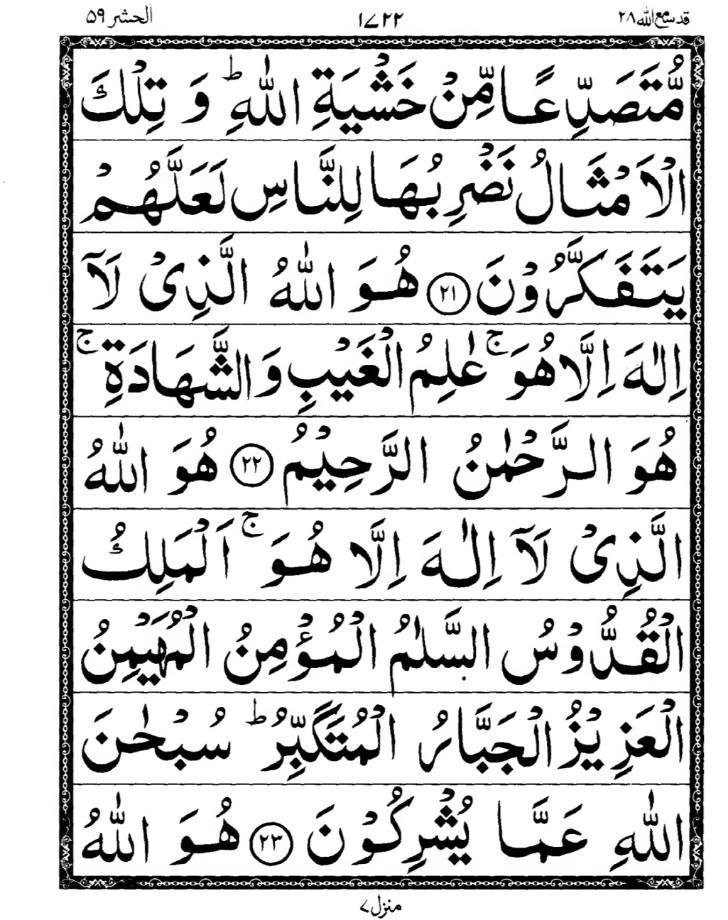 قد سمع الله ٢٨ ١٧٢٢ الحشر ٥٩
مُّتَصَدِّعًا مِّنْ خَشْيَةِ اللّٰهِ ؕ وَ تِلْكَ
الْاَمْثَالُ نَضْرِبُهَا لِلنَّاسِ لَعَلَّهُمْ
يَتَفَكَّرُوْنَ ﴿٢١﴾ هُوَ اللّٰهُ الَّذِىْ لَآ
اِلٰهَ اِلَّا هُوَ ۚ عٰلِمُ الْغَيْبِ وَالشَّهَادَةِ ۚ
هُوَ الرَّحْمٰنُ الرَّحِيْمُ ﴿٢٢﴾ هُوَ اللّٰهُ
الَّذِىْ لَآ اِلٰهَ اِلَّا هُوَ ۚ اَلْمَلِكُ
الْقُدُّوْسُ السَّلٰمُ الْمُؤْمِنُ الْمُهَيْمِنُ
الْعَزِيْزُ الْجَبَّارُ الْمُتَكَبِّرُ ؕ سُبْحٰنَ
اللّٰهِ عَمَّا يُشْرِكُوْنَ ﴿٢٣﴾ هُوَ اللّٰهُ
منزل ٧